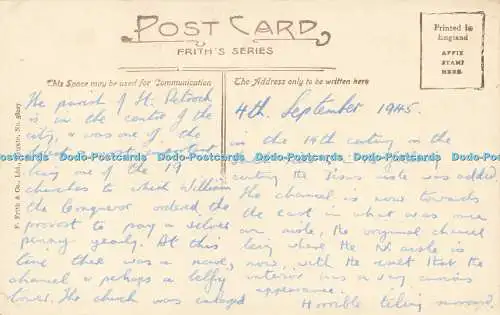 POST CARD
FRITH'S SERIES
Printed in
England
AFFIX
STAMP
HERE.
This Space may be used for Communication
The Address only to be written here
F. Frith & Co., Ltd., Reigate, No.
The parish of St. Petrock
is in the centre of the
city, & was one of the
being one of the 19
churches to which William
the Conqueror ordered the
provost to pay a silver
penny yearly. At this
time there was a nave,
chancel & perhaps a belfry
tower. The church was enlarged
4th. September 1945.
in the 14th century
century the Jesus aisle was added.
The chancel is now towards
the east in what was once
an aisle, the original chancel
being where the N. aisle is
now, with the result that the
interior has a very curious
appearance.
Horrible tiling
Dodo-Postcards Dodo-Postcards Dodo-Postcards Dodo-Postcards Dodo-Postcards
Dodo-Postcards Dodo-Postcards Dodo-Postcards Dodo-Postcards